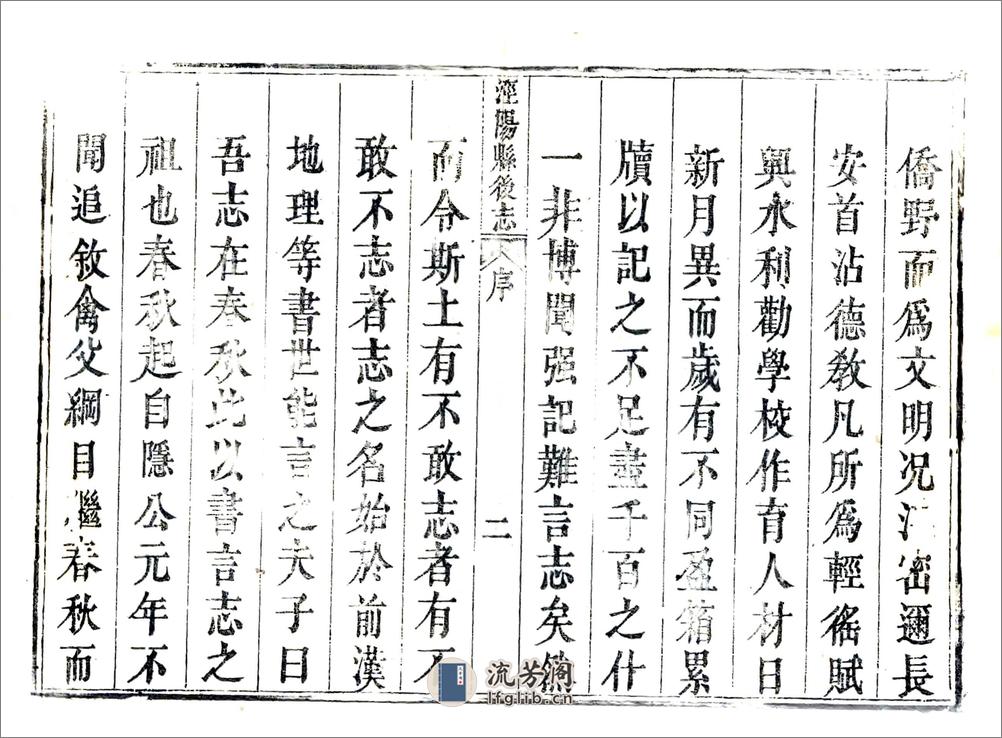 僑野而爲文明况涇密邇長
安首沾德敎凡所爲輕徭賦
興水利勸學校作育人材日
新月異而歲有不同盈箱累
牘以記之不足盡千百之什
一非博聞强記難言志矣然
涇陽縣後志 序 二
而令斯土有不敢志者有不
敢不志者志之名始於前漢
地理等書世能言之夫子曰
吾志在春秋此以書言志之
祖也春秋起自隱公元年不
聞追敘禽父綱目繼春秋而
流芳阁
lfglib.cn